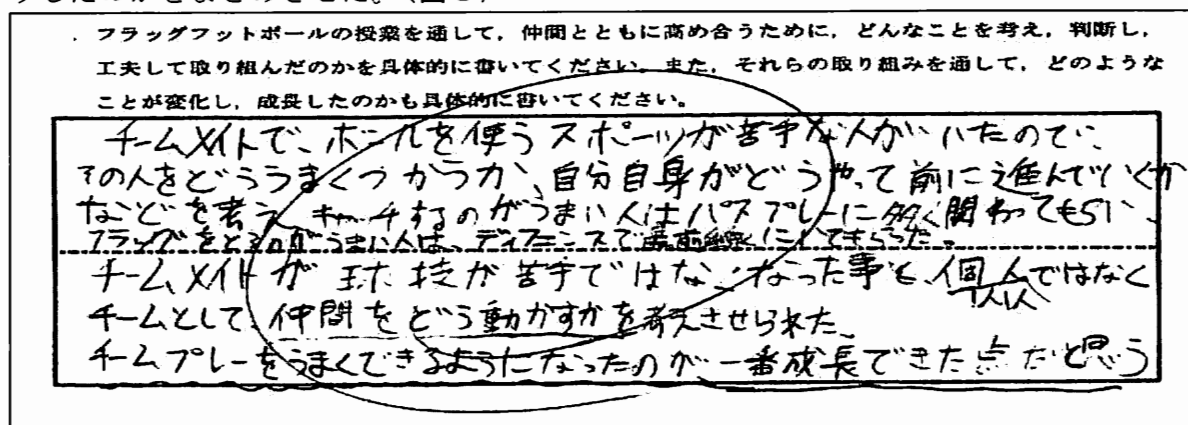 フラッグフットボールの授業を通して，仲間とともに高め合うために，どんなことを考え，判断し，
工夫して取り組んだのかを具体的に書いてください。また，それらの取り組みを通して，どのような
ことが変化し，成長したのかも具体的に書いてください。
チームメイトで、ボールを使うスポーツが苦手な人がいたので、
その人をどううまくつかうか、自分自身がどうやって前に進んでいくか
などを考え、キャッチするのがうまい人はパスプレーに多く関わってもらい、
フラッグをとるのがうまい人は、ディフェンスで最前線にいてもらった。
チームメイトが球技が苦手ではなくなった事と、個人ではなく
1人1人
チームとして、仲間をどう動かすかを考えさせられた。
チームプレーをうまくできるようになったのが、一番成長できた点だと思う